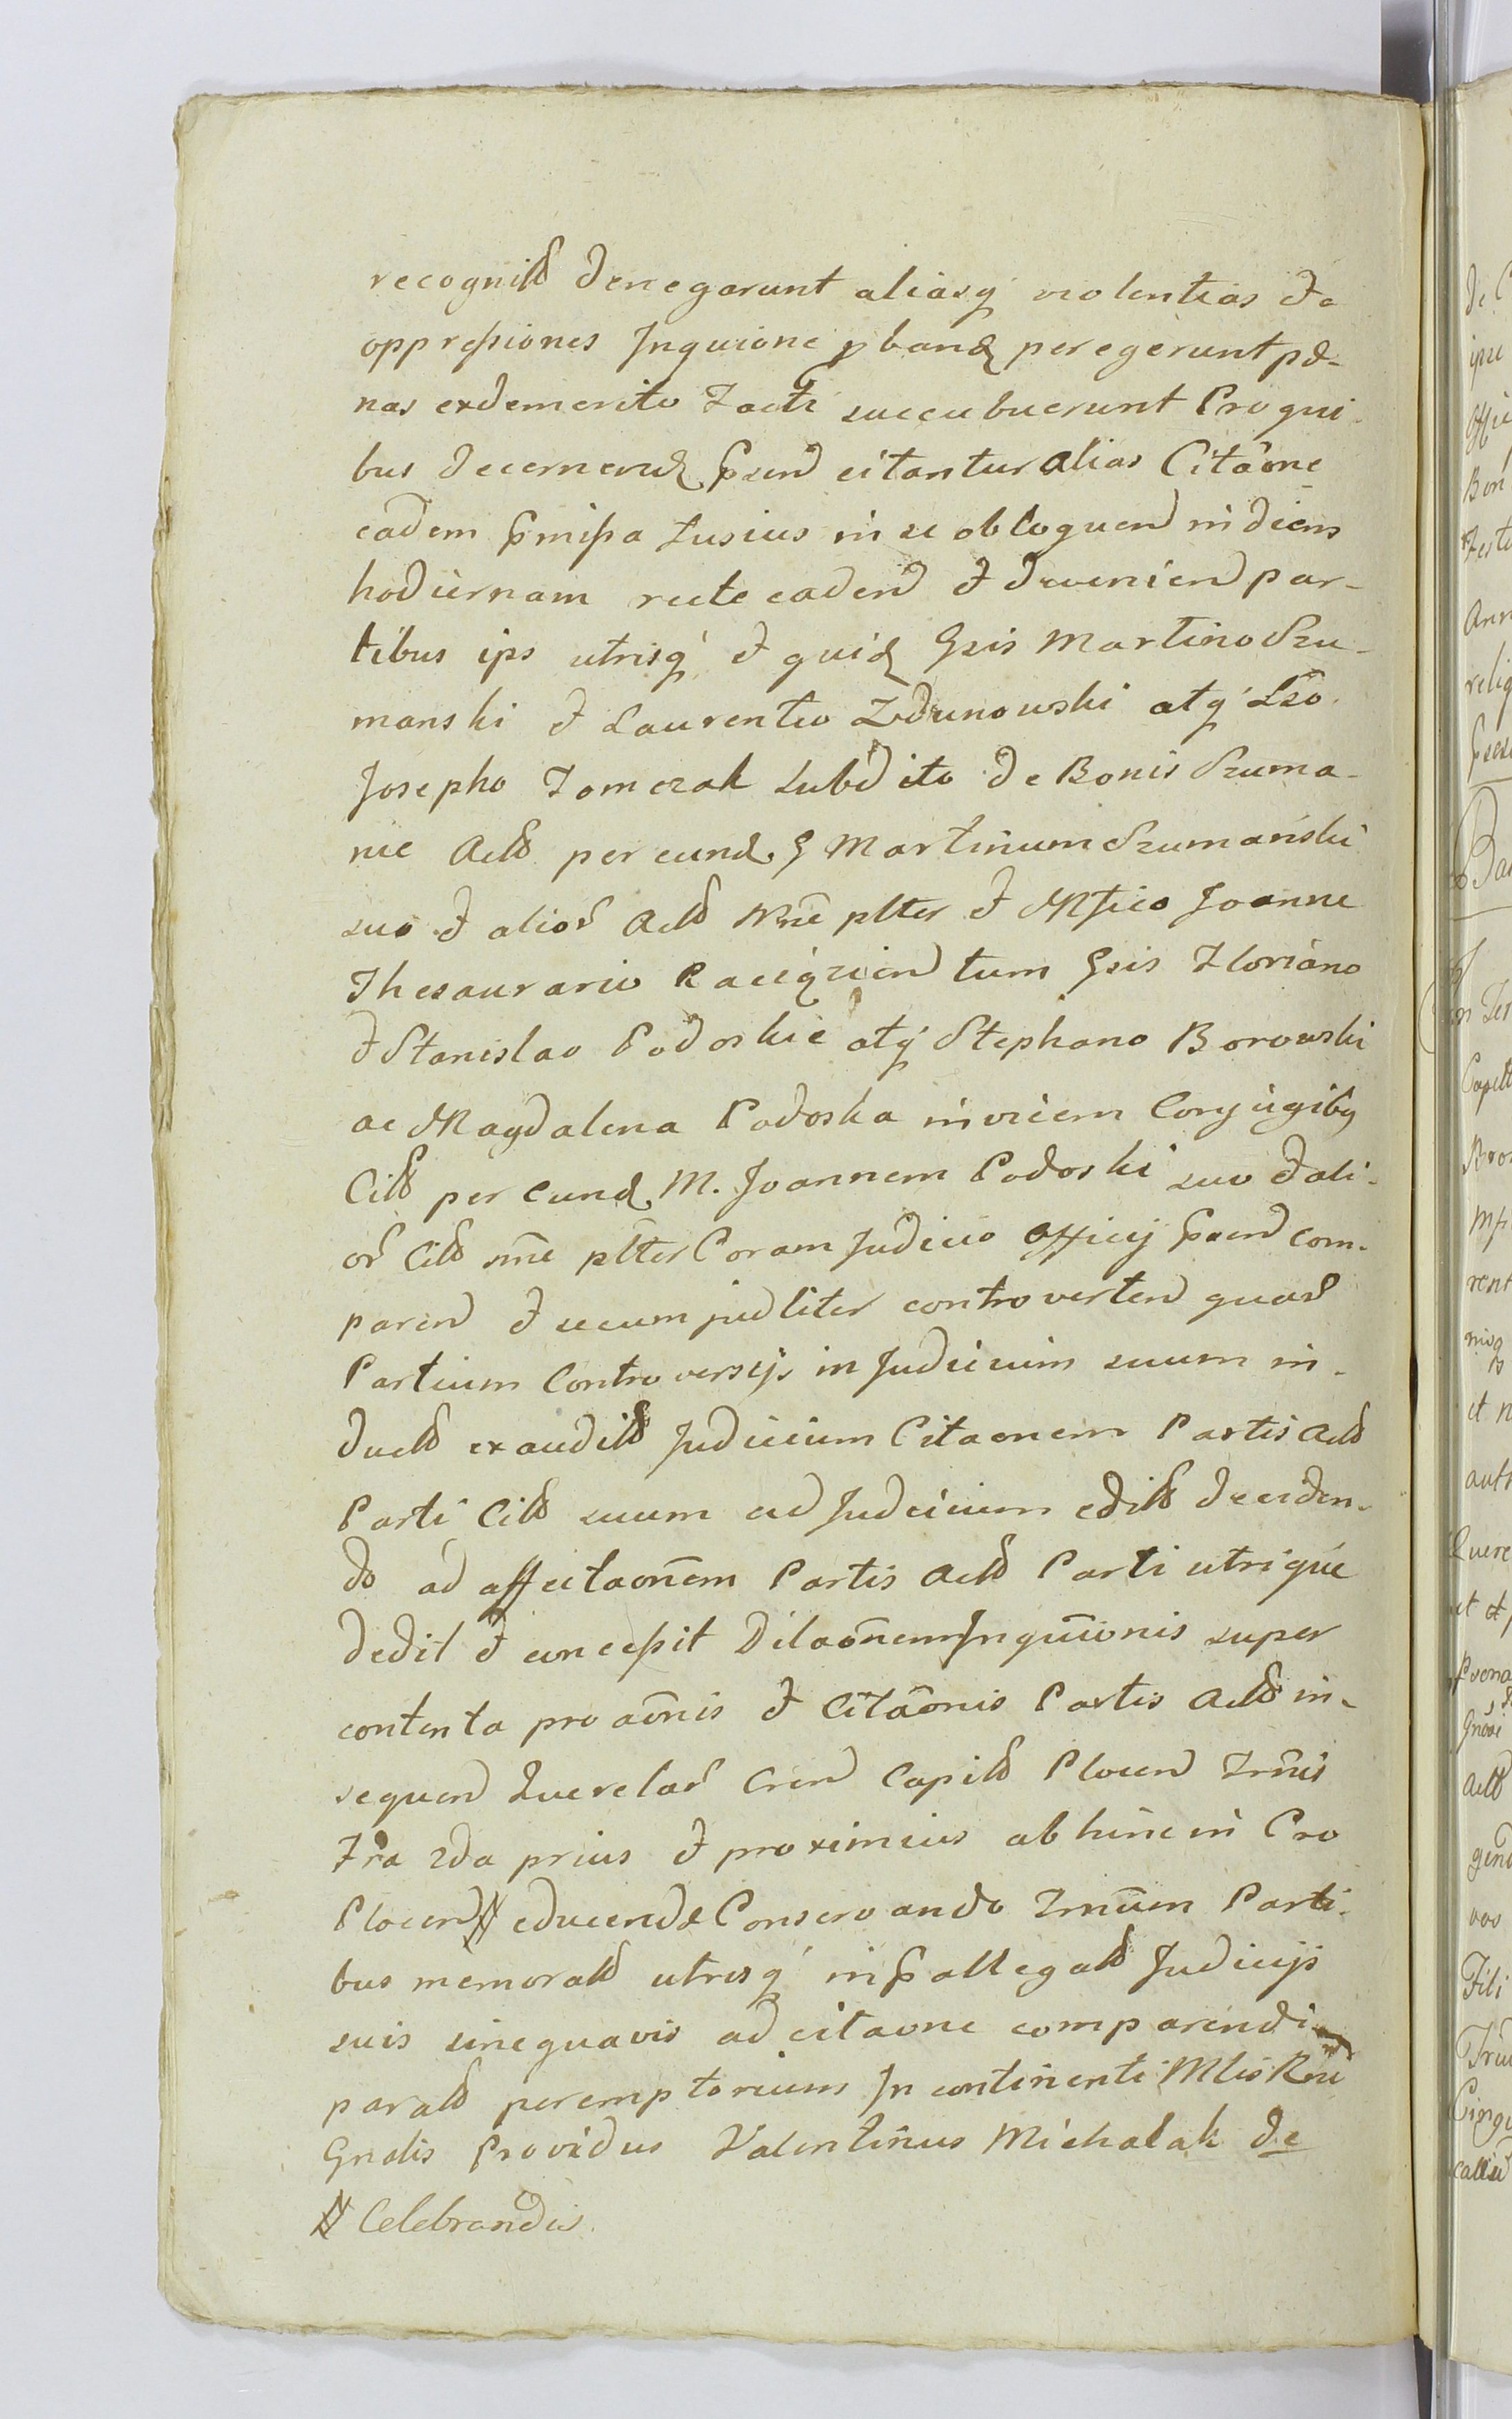 recognitt denegarunt aliasq́ violentias et
oppressiones Inquione pband peregerunt pæ-
nas exdemerito Facti succubuerunt Pro qui-
bus decernend Psend citantur alias Citãone
eadem Pmissa Lusius in se obloquend in diem
hodiernam recte cadend et devenien par-
tibus ips utrisq́ et quid Gsis Martino Szu-
manski et Laurentio Zdunowski atq́ Lso
Josepho Tomczak Subdito de Bonis Szuma-
nie Actt per eund G Martinum Szumański
suo et alior Actt Nne plter et Mfico Joanne
Thesaurario Raciązien tum Gsis Floriano
et Stanislao Podoskie atq́ Stephano Borowski
ac Magdalena Podoska invicem Conjugibq
Citt per eund M. Joannem Podoski suo et ali-
or Citt nne plter Coram Judicio Officij Psend com-
parend et secum judliter controvertend quar
Partium Controversijs in Judicium suum in-
ductt exauditt Judicium Citaonem Partis Actt
Parti Citt suum ad Judicium editt deciden-
do ad affectaonem Partis Actt Parti utrique
dedit et concessit Dilaonem Inquionis super
contenta proaonis et Citãonis Partis Actt in-
sequend Querelar Cren Capitt Plocen Trnis
Fra 2da prius et proximius abhinc in Cro
Plocen # educend Conservando Trnum Parti-
bus memoratt utrisq́ in Pallegatt Judicijs
suis sinequavis ad citaone comparendi
paratt peremptorium In continenti Mlis Rni
Gnalis Providus Valentinus Michalak de
# Celebrandis.